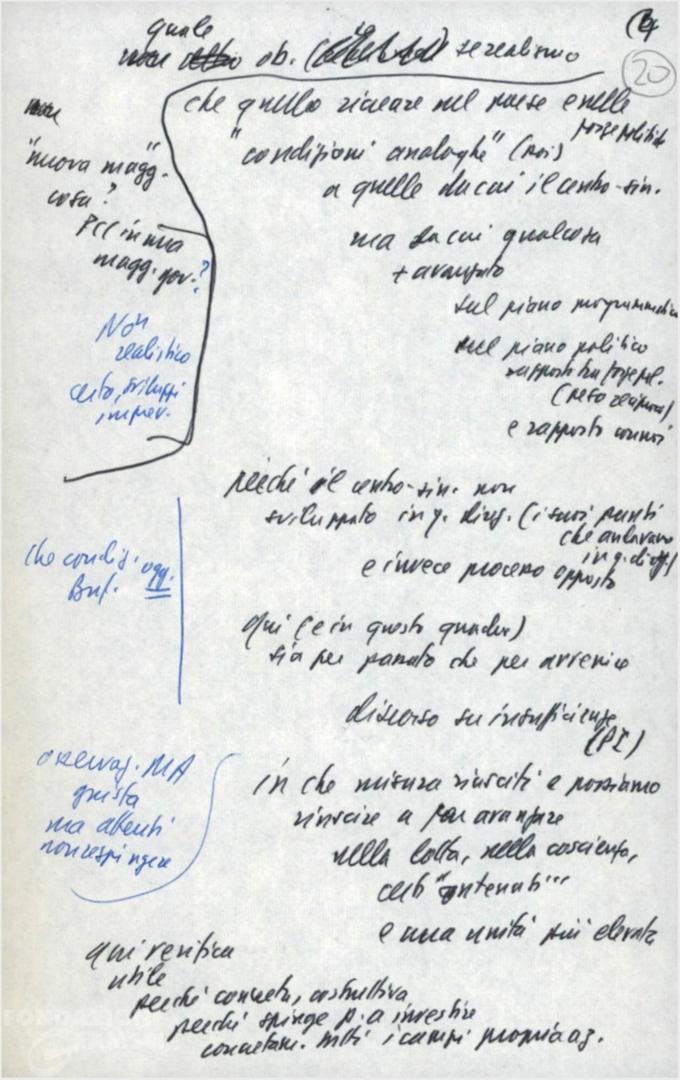 20
quale
ob. se realismo
che quello ricreare nel paese e nelle
forze politiche
"condizioni analoghe" (noi)
a quelle da cui il centro-sin.
ma da cui qualcosa
+ avanzato
sul piano programmatico
sul piano politico
rapporti tra forze pol.
e rapporto con noi
"nuova magg."
cosa?
PCI in una
magg. gov.?
Non
realistico
certo, sviluppi
imprev.
perché il centro-sin. non
sviluppato in q. direz. (i suoi punti
che andavano
in q. direz.)
e invece processo opposto
che condiz. ogg.
qui (e in questo quadro)
sia per passato che per avvenire
discorso su insufficienze
in che misura riusciti e possiamo
riuscire a far avanzare
nella lotta, nella coscienza,
certi "contenuti"
e una unità più elevata
osservaz. MA
giusta
ma attenti
non respingere
qui verifica
utile
perché concreta, costruttiva
perché spinge p. a investire
concretam. tutti i campi propria az.
FONDAZIONE